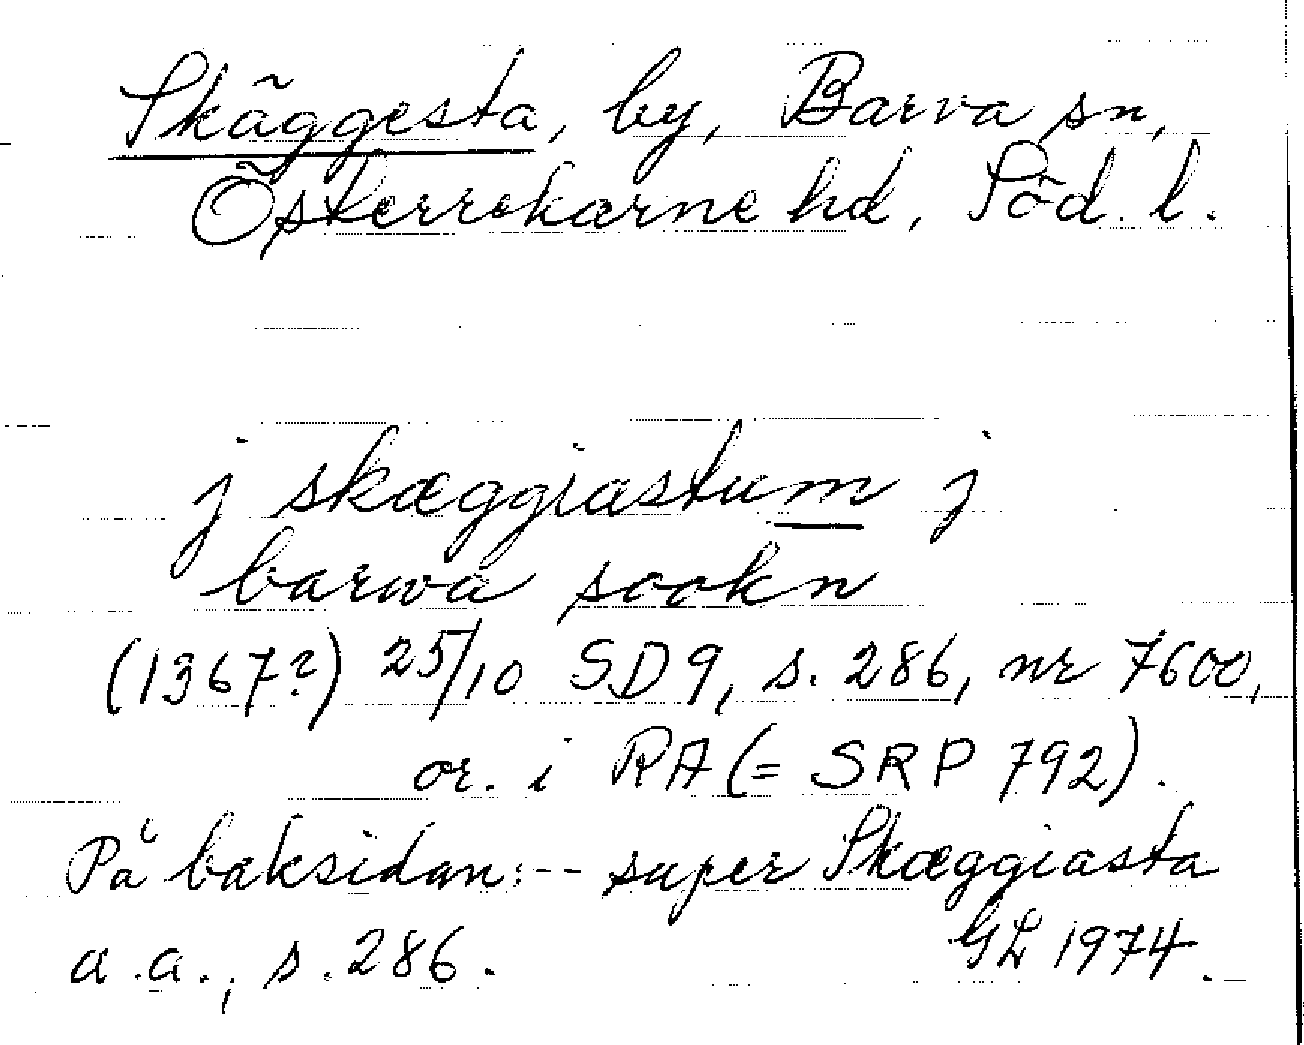 Skäggesta, by, Barva sn,
Österrekarne hd, Söd. l.
j skæggiastum j
barwa sookn
(1367?) 25/10 SD 9, s. 286, nr 7600,
or. i RA (= SRP 792).
På baksidan: -- super Skæggiasta
a.a., s. 286. GL 1974.